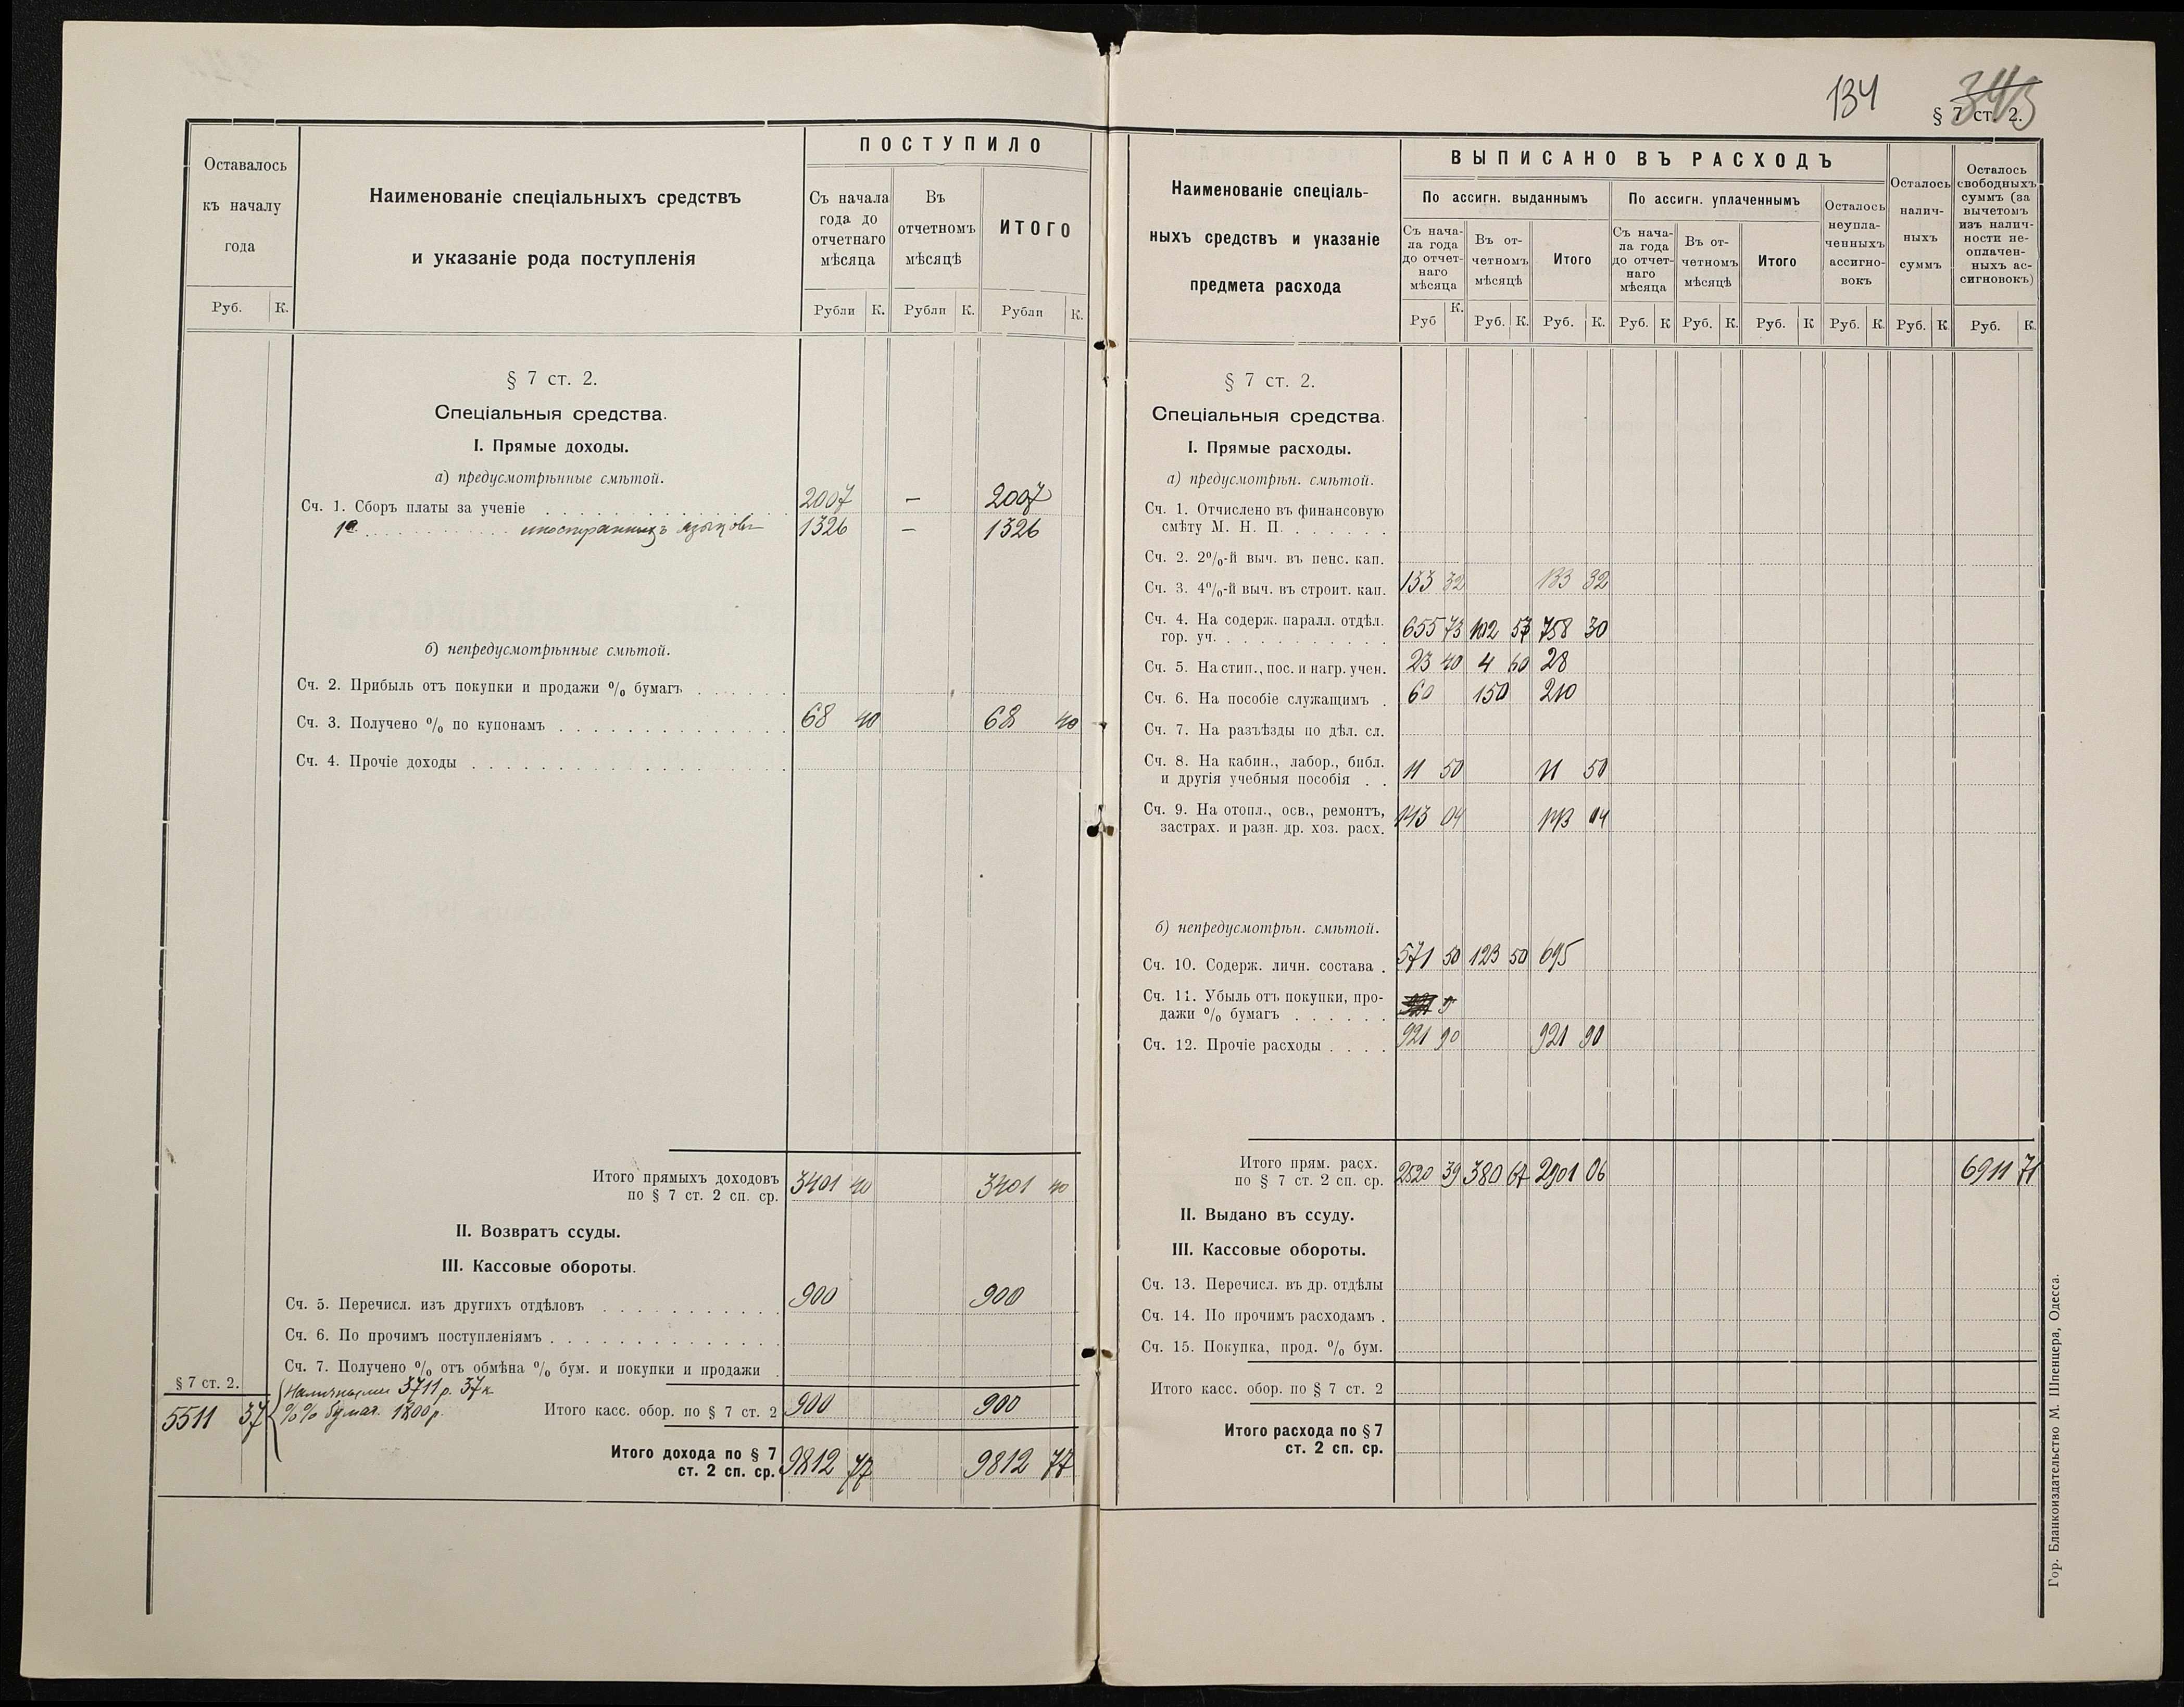 134
343
§ 7 ст. 2.
Оставалось
къ началу
года
Руб. К.
Наименованіе спеціальныхъ средствъ
и указаніе рода поступленія
ПОСТУПИЛО
Съ начала
года до
отчетнаго
мѣсяца
Въ
отчетномъ
мѣсяцѣ
ИТОГО
Рубли К. Рубли К. Рубли К.
§ 7 ст. 2.
Спеціальныя средства.
I. Прямые доходы.
а) предусмотрѣнные смѣтой.
Сч. 1. Сборъ платы за ученіе 2007 — 2007
1а иностранныхъ языковъ 1326 — 1326
б) непредусмотрѣнные смѣтой.
Сч. 2. Прибыль отъ покупки и продажи % бумагъ
Сч. 3. Получено % по купонамъ 68 40 68 40
Сч. 4. Прочіе доходы
Итого прямыхъ доходовъ
по § 7 ст. 2 сп. ср. 3401 40 3401 40
II. Возвратъ ссуды.
III. Кассовые обороты.
Сч. 5. Перечисл. изъ другихъ отдѣловъ 900 900
Сч. 6. По прочимъ поступленіямъ
Сч. 7. Получено % отъ обмѣна % бум. и покупки и продажи
§ 7 ст. 2.
Наличными 3711 р. 37 к
5511 37 %% бумаг. 1800 р. Итого касс. обор. по § 7 ст. 2 900 900
Итого дохода по § 7
ст. 2 сп. ср. 9812 77 9812 77
Наименованіе спеціаль-
ныхъ средствъ и указаніе
предмета расхода
ВЫПИСАНО ВЪ РАСХОДЪ
По ассигн. выданнымъ
По ассигн. уплаченнымъ
Съ нача-
ла года
до отчет-
наго
мѣсяца
Въ от-
четномъ
мѣсяцѣ
Итого
Съ нача-
ла года
до отчет-
наго
мѣсяца
Въ от-
четномъ
мѣсяцѣ
Итого
Осталось
неупла-
ченныхъ
ассигно-
вокъ
Осталось
налич-
ныхъ
суммъ
Осталось
свободныхъ
суммъ (за
вычетомъ
изъ налич-
ности не-
оплачен-
ныхъ ас-
сигновокъ)
Руб К. Руб. К. Руб. К. Руб. К Руб. К. Руб. К Руб. К. Руб. К. Руб. К.
§ 7 ст. 2.
Спеціальныя средства.
I. Прямые расходы.
а) предусмотрѣн. смѣтой.
Сч. 1. Отчислено въ финансовую
смѣту М. Н. П.
Сч. 2. 2%-й выч. въ пенс. кап.
Сч. 3. 4%-й выч. въ строит. кап. 133 32 133 32
Сч. 4. На содерж. паралл. отдѣл.
гор. уч. 655 73 102 57 758 30
Сч. 5. На стип., пос. и нагр. учен. 23 40 4 60 28
Сч. 6. На пособіе служащимъ 60 150 210
Сч. 7. На разъѣзды по дѣл. сл.
Сч. 8. На кабин., лабор., библ.
и другія учебныя пособія 11 50 11 50
Сч. 9. На отопл., осв., ремонтъ,
застрах. и разн. др. хоз. расх. 143 04 143 04
б) непредусмотрѣн. смѣтой.
Сч. 10. Содерж. личн. состава 571 50 123 50 695
Сч. 11. Убыль отъ покупки, про-
дажи % бумагъ
Сч. 12. Прочіе расходы 921 90 921 90
Итого прям. расх.
по § 7 ст. 2 сп. ср. 2520 39 380 67 2901 06 6911 71
II. Выдано въ ссуду.
III. Кассовые обороты.
Сч. 13. Перечисл. въ др. отдѣлы
Сч. 14. По прочимъ расходамъ
Сч. 15. Покупка, прод. % бум.
Итого касс. обор. по § 7 ст. 2
Итого расхода по § 7
ст. 2 сп. ср.
Гор. Бланкоиздательство М. Шпенцера, Одесса.